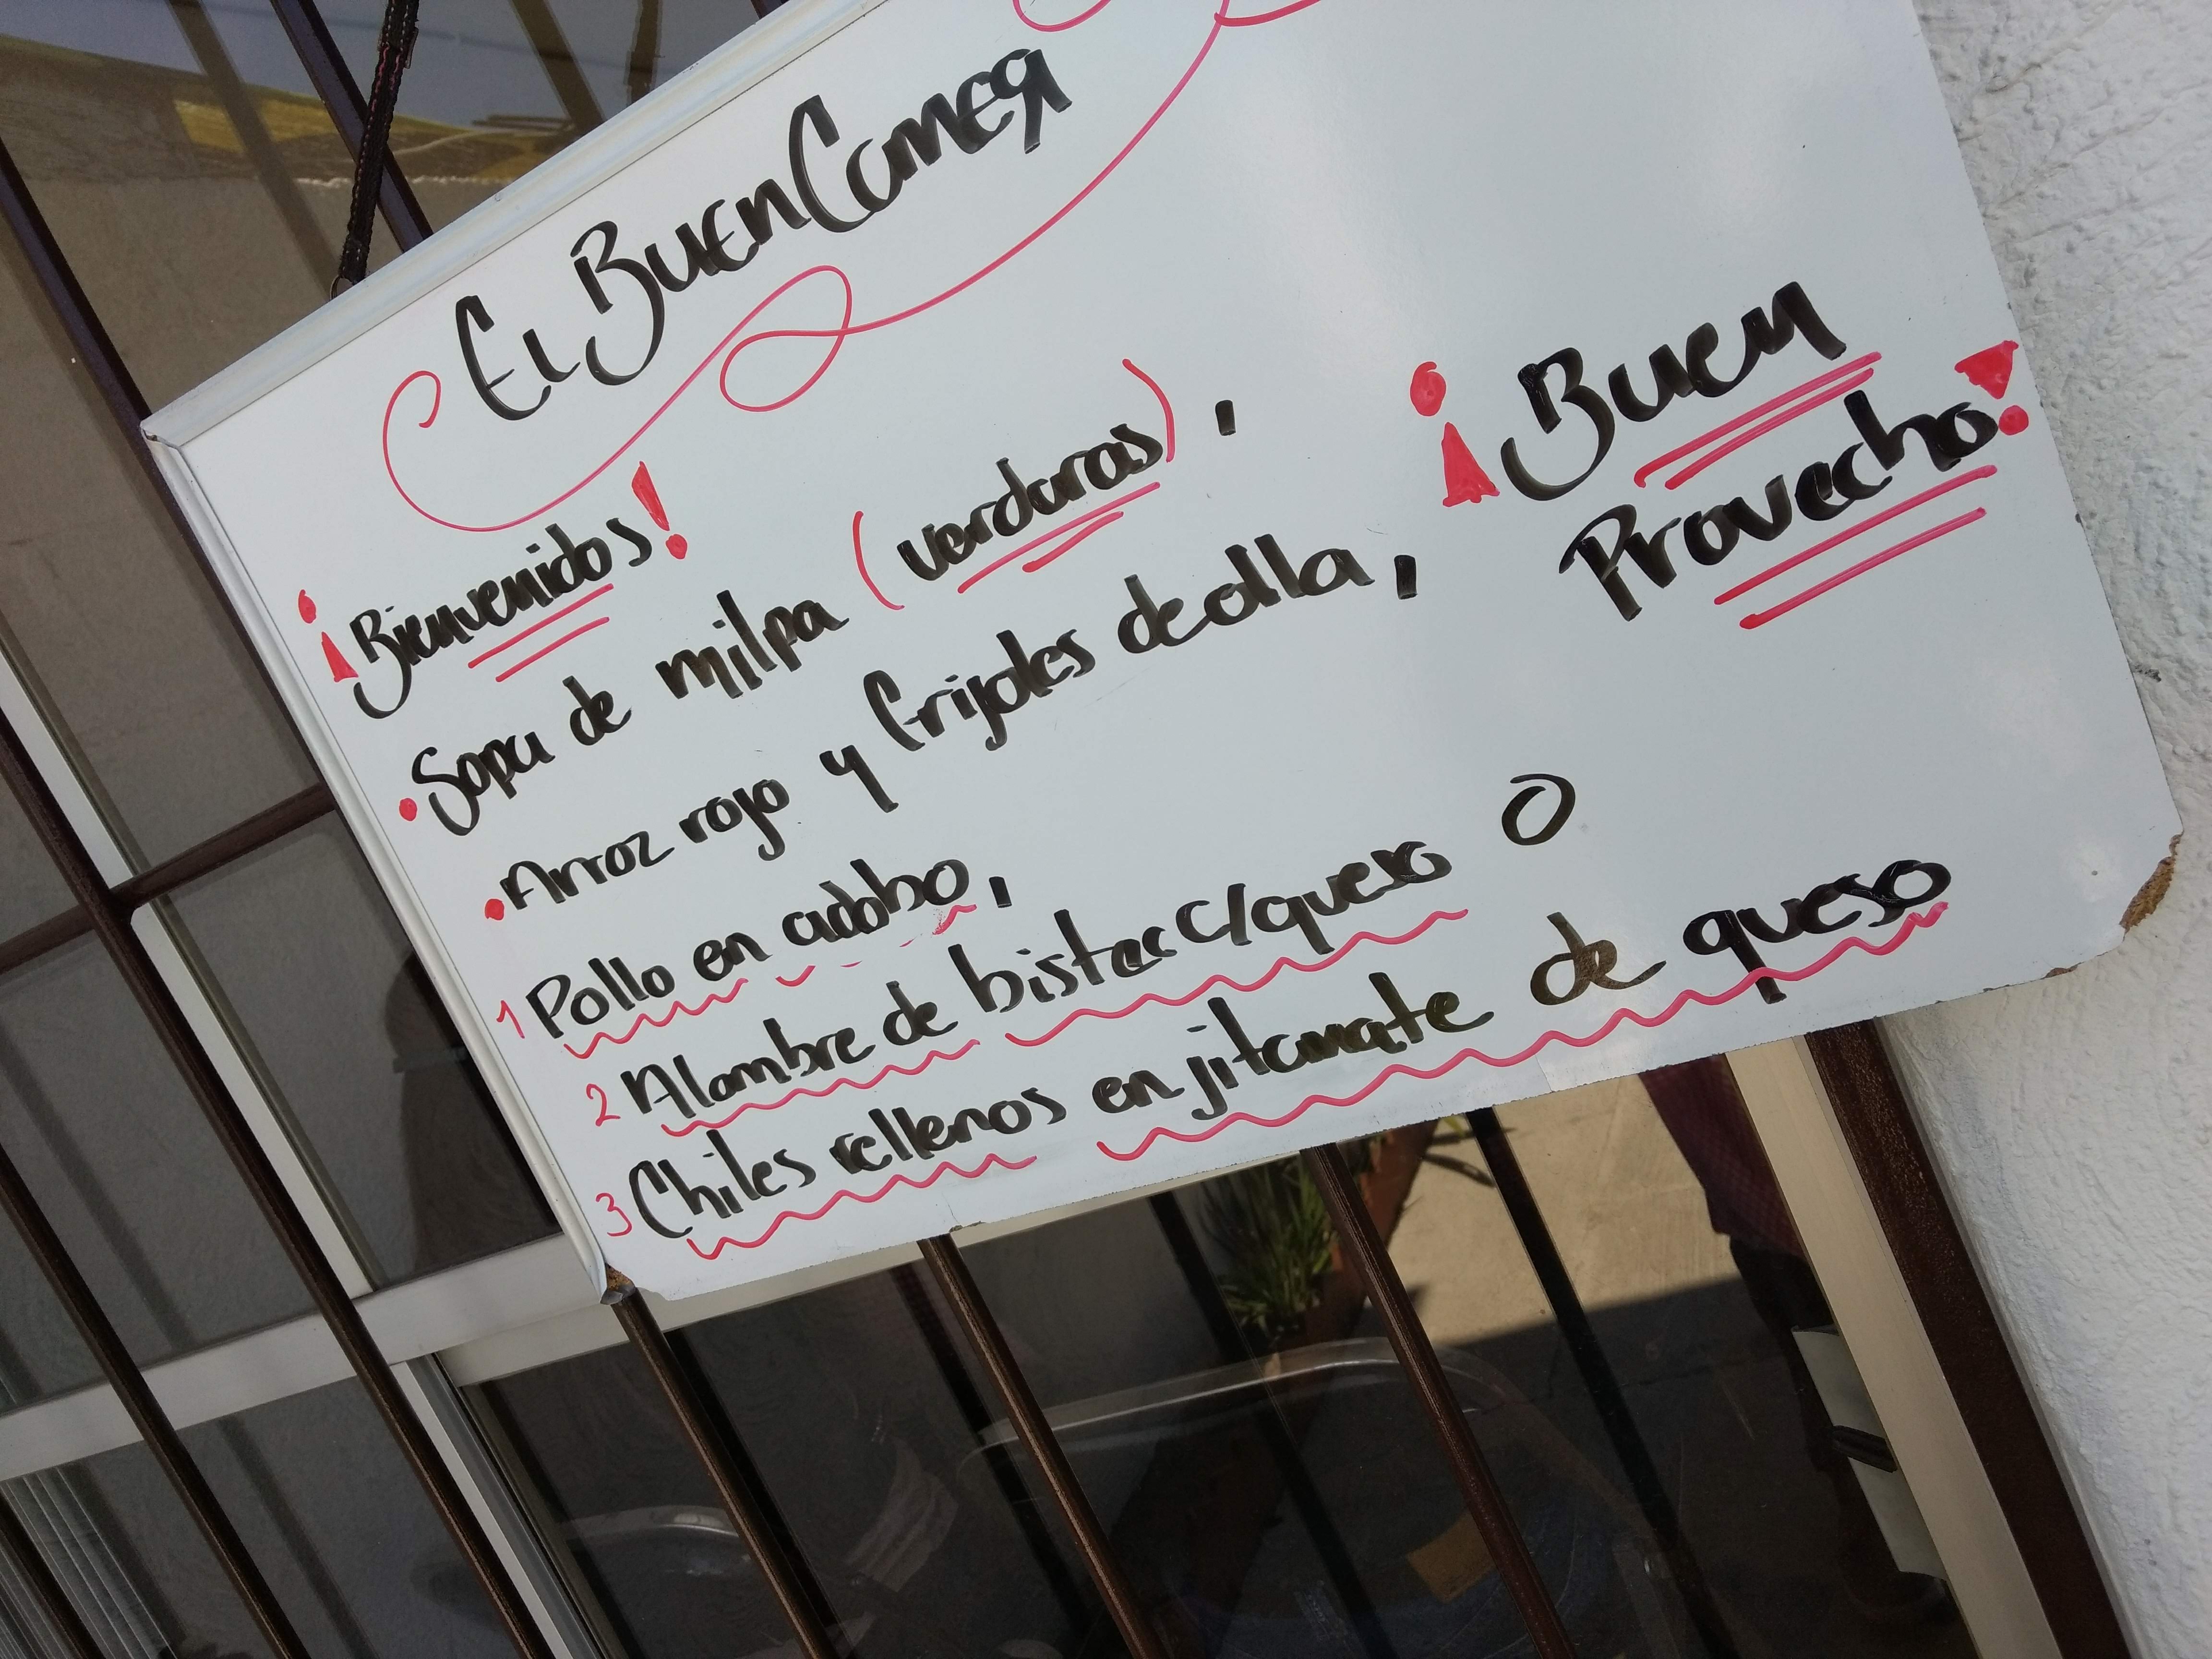 El Buen Comer
¡Bienvenidos!
• Sopa de milpa (verduras),
• Arroz rojo y frijoles de olla,
¡Buen
Provecho!
1 Pollo en adobo,
2 Alambre de bistec c/queso O
3 Chiles rellenos en jitomate de queso